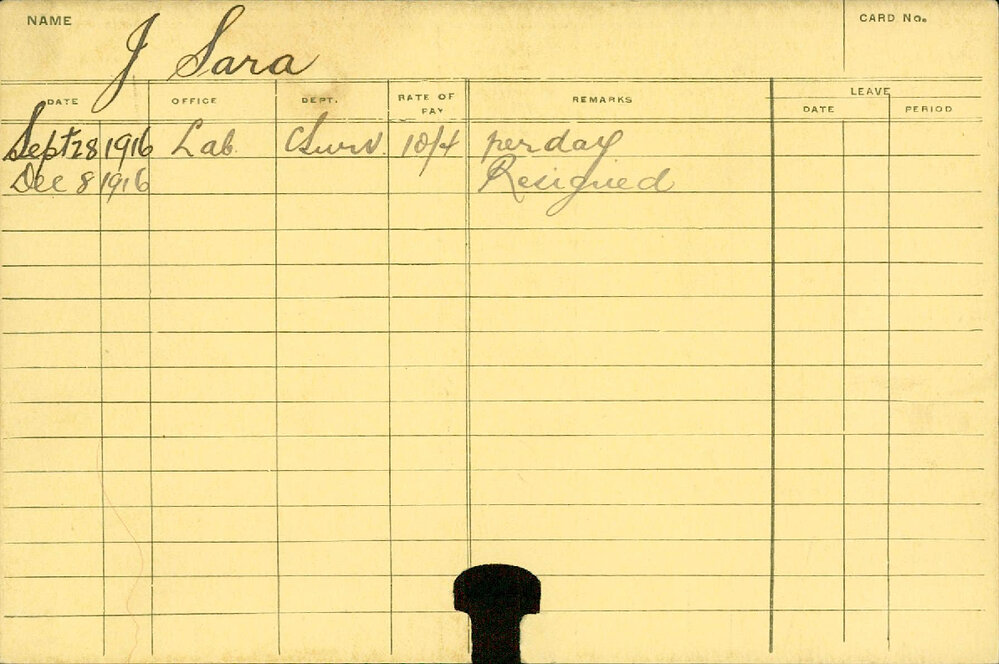 NAME J Sara CARD No.
DATE OFFICE DEPT. RATE OF PAY REMARKS LEAVE
DATE PERIOD
Sept 28 1916 Lab. CSurv. 10/4 per day
Dec 8 1916 Resigned